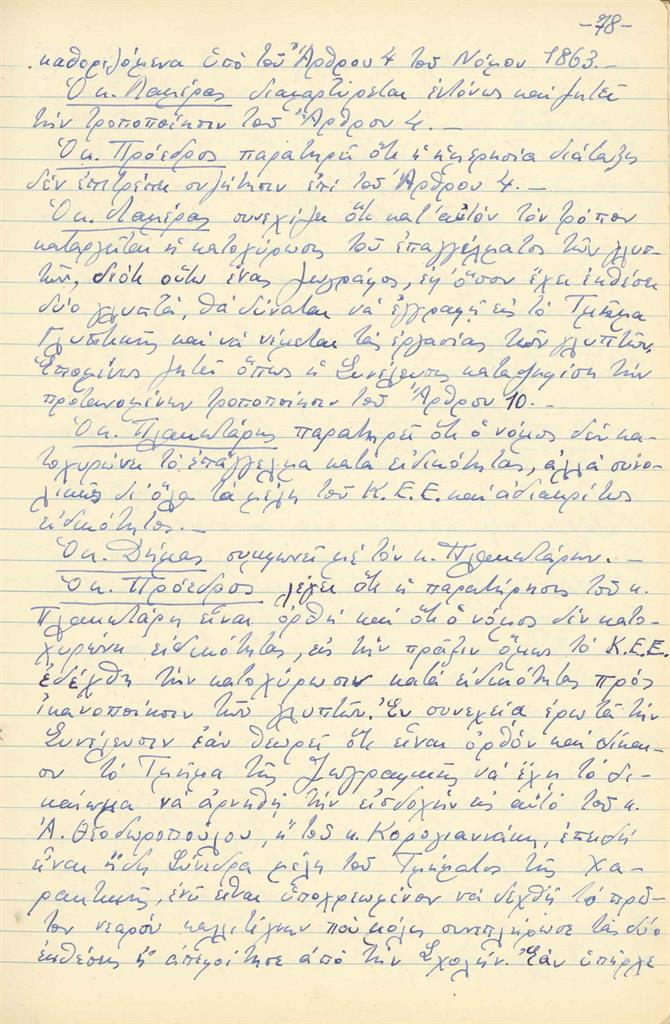 -78-
καθοριζόμενα ὑπὸ τοῦ Ἄρθρου 4 τοῦ Νόμου 1863.-
Ὁ κ. Λαμέρας διαμαρτύρεται ἐντόνως καὶ ζητεῖ
τὴν τροποποίησιν τοῦ Ἄρθρου 4.-
Ὁ κ. Πρόεδρος παρατηρεῖ ὅτι ἡ ἡμερησία διάταξις
δὲν ἐπιτρέπει συζήτησιν ἐπὶ τοῦ Ἄρθρου 4.-
Ὁ κ. Λαμέρας συνεχίζει ὅτι κατ' αὐτὸν τὸν τρόπον
καταργεῖται ἡ κατοχύρωσις τοῦ ἐπαγγέλματος τῶν γλυπ-
τῶν, διότι οὕτω ἕνας ζωγράφος, ἐφ' ὅσον ἔχει ἐκθέσει
δύο γλυπτά, θὰ δύναται νὰ ἐγγραφῇ εἰς τὸ Τμῆμα
Γλυπτικῆς καὶ νὰ νέμεται τὰς ἐργασίας τῶν γλυπτῶν.
Ἑπομένως ζητεῖ ὅπως ἡ Συνέλευσις καταψηφίσῃ τὴν
προτεινομένην τροποποίησιν τοῦ Ἄρθρου 10.-
Ὁ κ. Πλακωτάρης παρατηρεῖ ὅτι ὁ νόμος δὲν κα-
τοχυρώνει τὸ ἐπάγγελμα κατὰ εἰδικότητας, ἀλλὰ συνο-
λικῶς δι' ὅλα τὰ μέλη τοῦ Κ.Ε.Ε. καὶ ἀδιακρίτως
εἰδικότητος.-
Ὁ κ. Δήμας συμφωνεῖ μὲ τὸν κ. Πλακωτάρην.-
Ὁ κ. Πρόεδρος λέγει ὅτι ἡ παρατήρησις τοῦ κ.
Πλακωτάρη εἶναι ὀρθὴ καὶ ὅτι ὁ νόμος δὲν κατο-
χυρώνει εἰδικότητας, εἰς τὴν πρᾶξιν ὅμως τὸ Κ.Ε.Ε.
ἐδέχθη τὴν κατοχύρωσιν κατὰ εἰδικότητας πρὸς
ἱκανοποίησιν τῶν γλυπτῶν. Ἐν συνεχείᾳ ἐρωτᾶ τὴν
Συνέλευσιν ἐὰν θεωρεῖ ὅτι εἶναι ὀρθὸν καὶ δίκαι-
ον τὸ Τμῆμα τῆς Ζωγραφικῆς νὰ ἔχῃ τὸ δι-
καίωμα νὰ ἀρνηθῇ τὴν εἰσδοχὴν εἰς αὐτὸ τοῦ κ.
Ἀ. Θεοδωροπούλου, ἢ τοῦ κ. Κορογιαννάκη, ἐπειδὴ
εἶναι ἤδη Σύνεδρα μέλη τοῦ Τμήματος τῆς Χα-
ρακτικῆς, ἐνῶ εἶναι ὑποχρεωμένον νὰ δεχθῇ τὸ πρῶ-
τον νεαρὸν καλλιτέχνην ποὺ μόλις συνεπλήρωσε τὰς δύο
ἐκθέσεις ἢ ἀπεφοίτησε ἀπὸ τὴν Σχολήν. Ἐὰν ὑπῆρχε